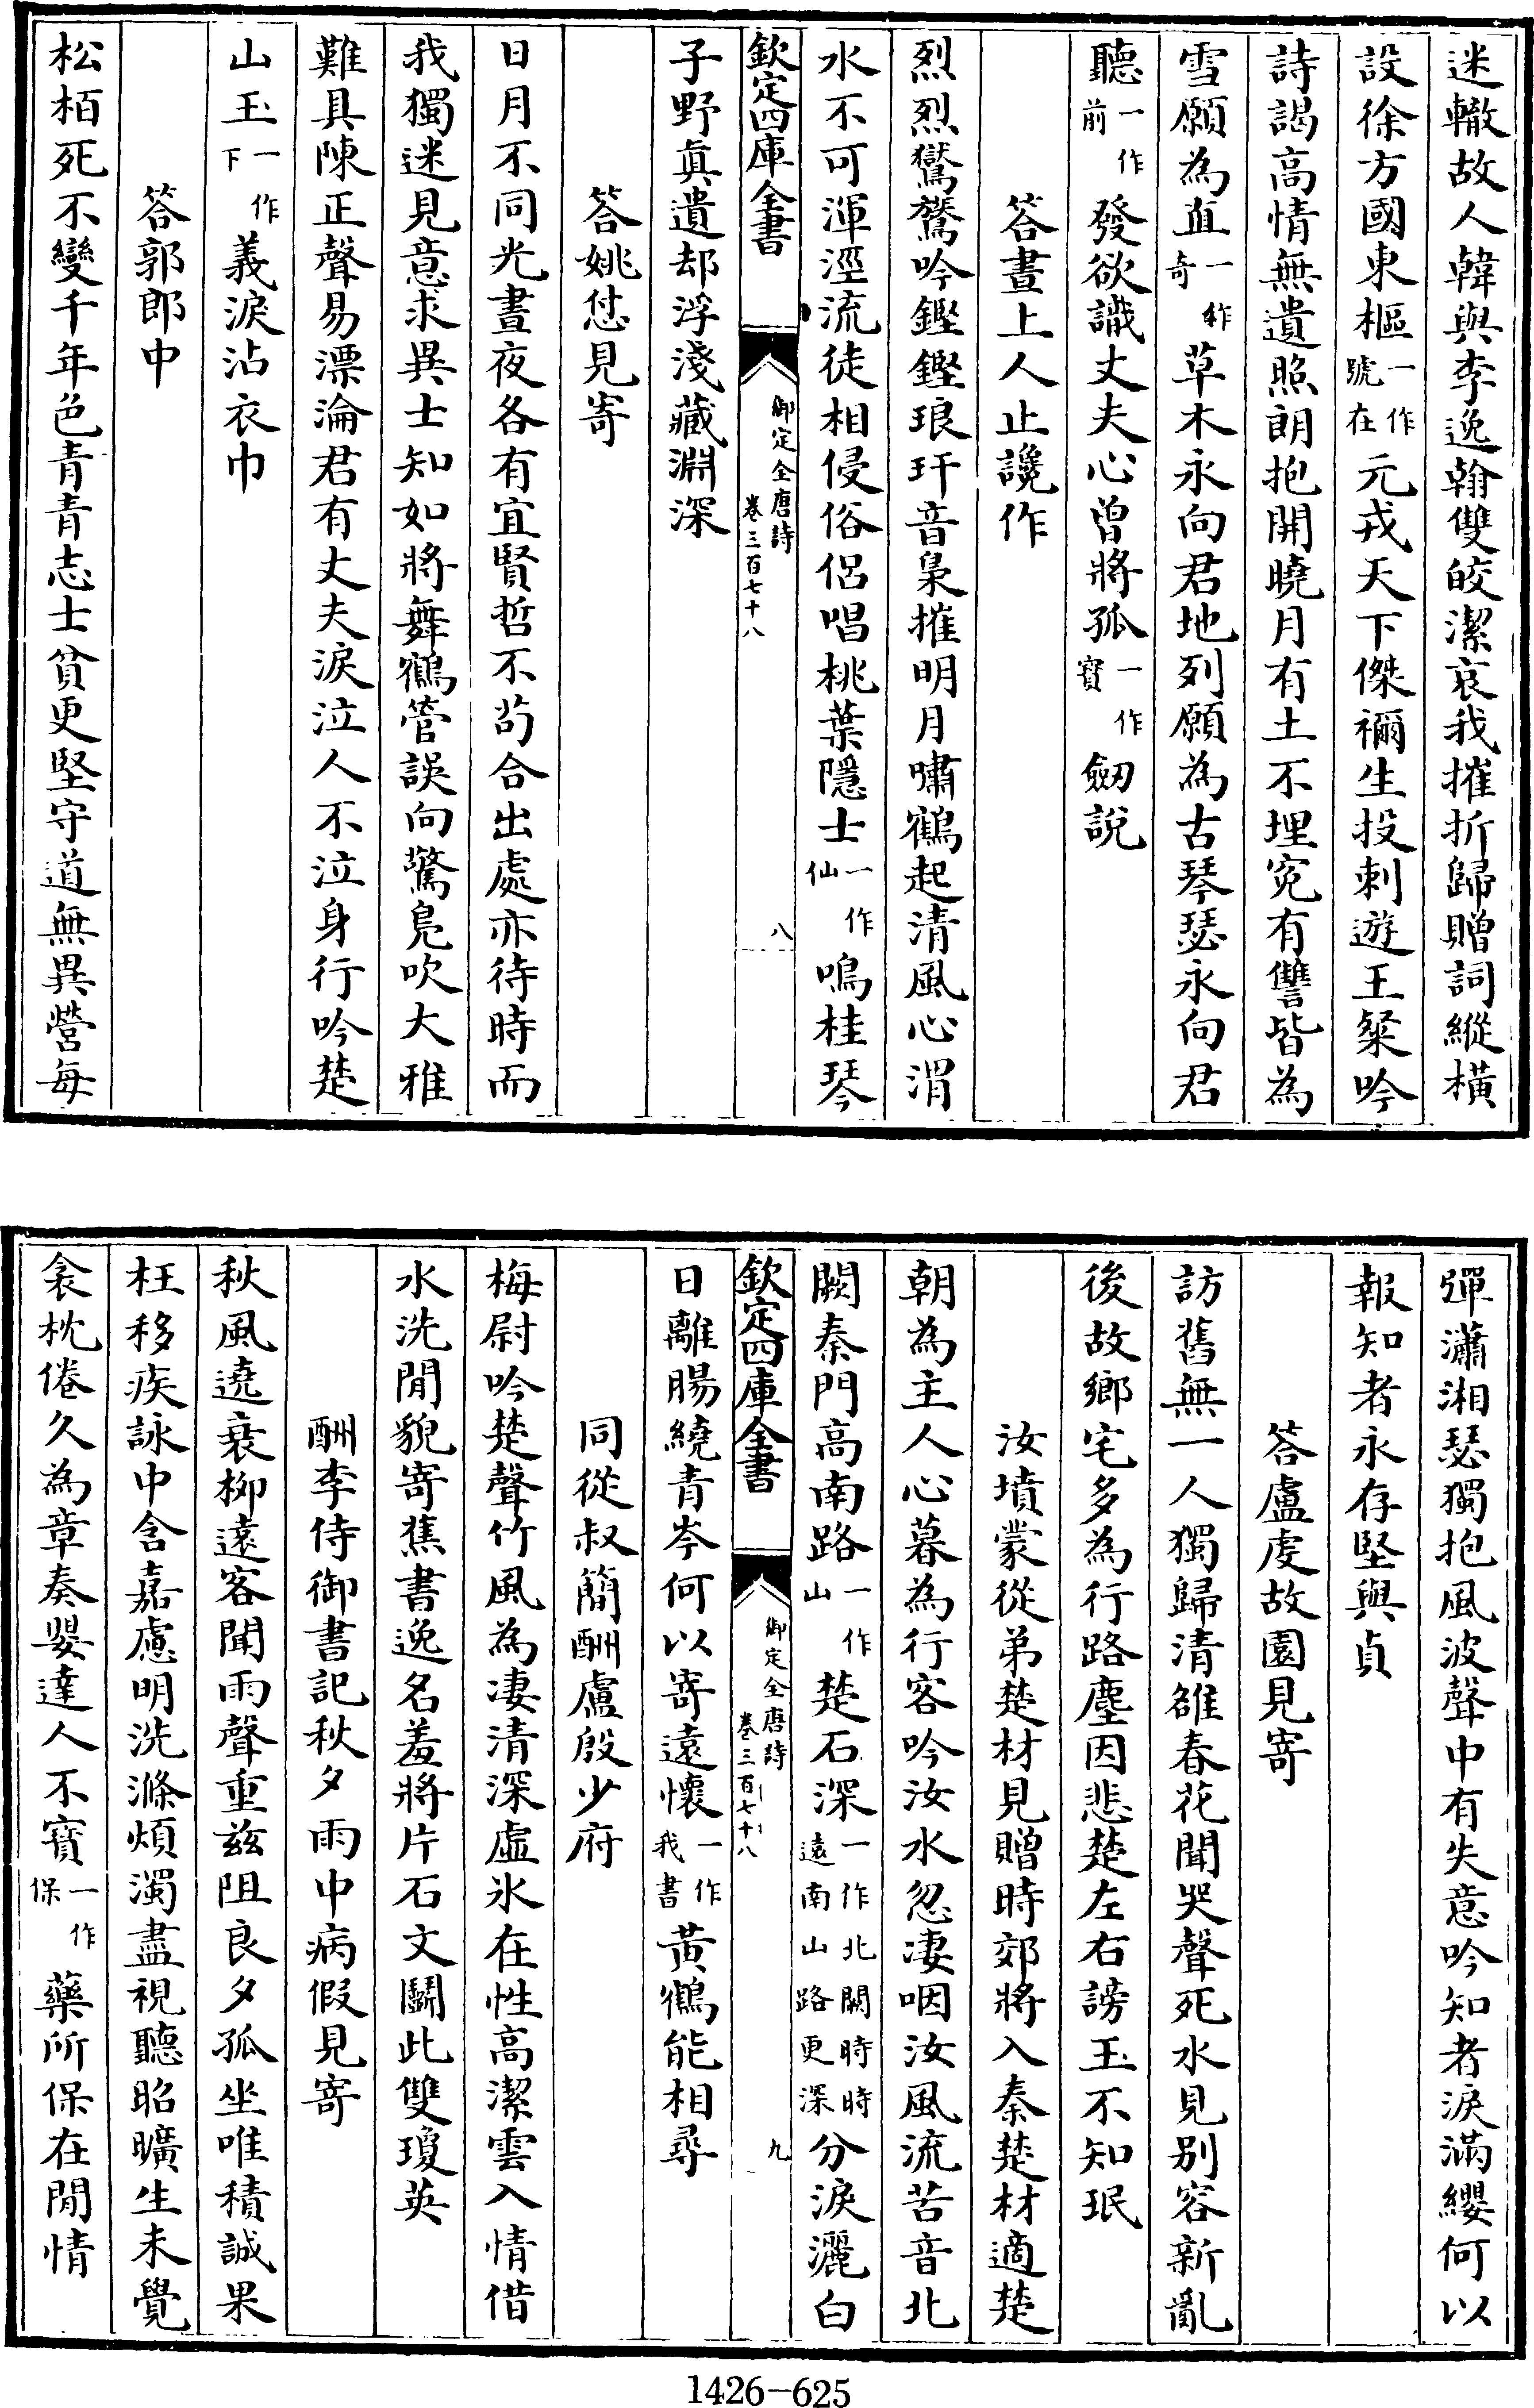 迷轍故人韓與李逸翰雙皎潔哀我摧折歸贈詞縱橫
設徐方國東樞一作號在元戎天下傑禰生投刺遊王粲吟
詩謁高情無遺照朗抱開曉月有土不埋寃有讐皆為
雪願為直一作奇草木永向君地列願為古琴瑟永向君
聽一作前發欲識丈夫心曾將孤一作寶劒說
答晝上人止讒作
烈烈鸑鷟吟鏗鏗琅玕音梟摧明月嘯鶴起清風心渭
水不可渾涇流徒相侵俗侶唱桃葉隱士一作仙鳴桂琴
欽定四庫全書
御定全唐詩
卷三百七十八
八
子野真遺却浮淺藏淵深
答姚怤見寄
日月不同光晝夜各有宜賢哲不苟合出處亦待時而
我獨迷見意求異士知如將舞鶴管誤向驚鳬吹大雅
難具陳正聲易漂淪君有丈夫淚泣人不泣身行吟楚
山玉一作下義淚沾衣巾
答郭郎中
松栢死不變千年色青青志士貧更堅守道無異營每
彈瀟湘瑟獨抱風波聲中有失意吟知者淚滿纓何以
報知者永存堅與貞
答盧虔故園見寄
訪舊無一人獨歸清雒春花聞哭聲死水見别容新亂
後故鄉宅多為行路塵因悲楚左右謗玉不知珉
汝墳蒙從弟楚材見贈時郊將入秦楚材適楚
朝為主人心暮為行客吟汝水忽凄咽汝風流苦音北
闕秦門高南路一作山楚石深一作北闕時時遠南山路更深分淚灑白
欽定四庫全書
御定全唐詩
卷三百七十八
九
日離腸繞青岑何以寄遠懷一作我書黃鶴能相尋
同從叔簡酬盧殷少府
梅尉吟楚聲竹風為凄清深虛氷在性高潔雲入情借
水洗閒貌寄蕉書逸名羞將片石文鬭此雙瓊英
酬李侍御書記秋夕雨中病假見寄
秋風遶衰栁遠客聞雨聲重兹阻良夕孤坐唯積誠果
枉移疾詠中含嘉慮明洗滌煩濁盡視聽昭曠生未覺
衾枕倦久為章奏嬰達人不寶一作保藥所保在閒情
1426-625